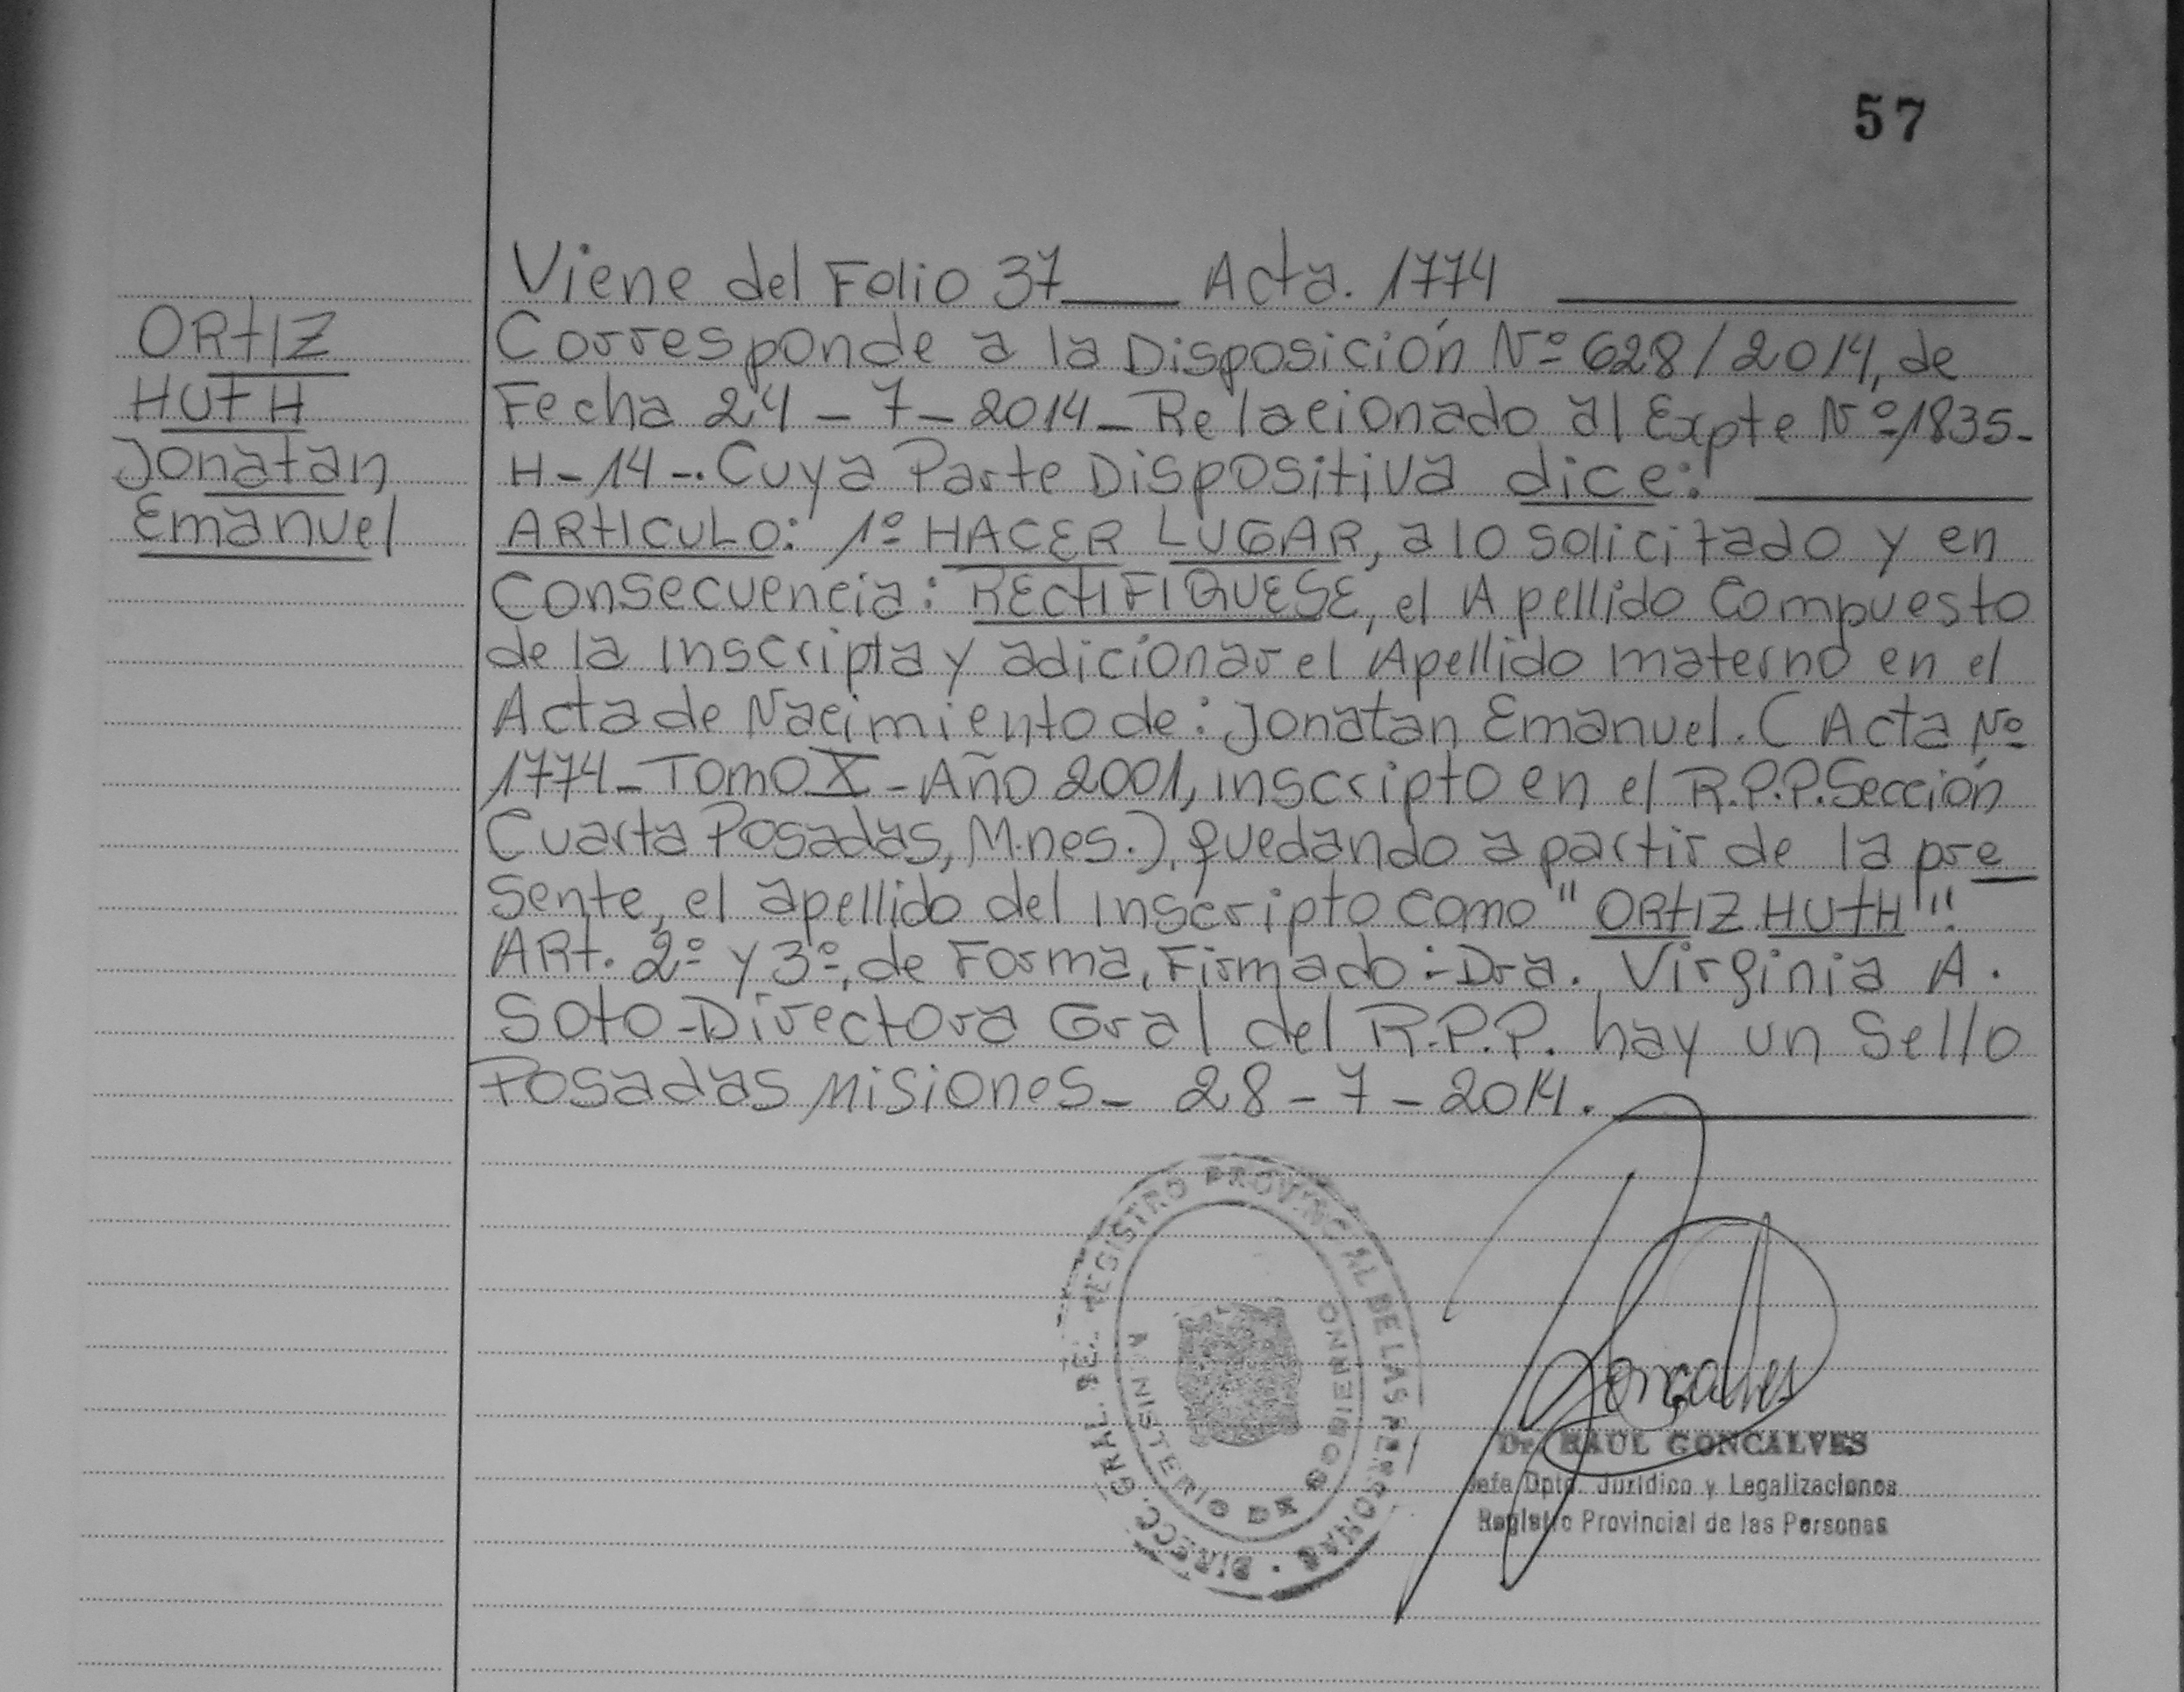 57
Viene del Folio 37 ____ Acta. 1774 ____
ORTIZ
HUTH
Jonatan
Emanuel
Corresponde a la Disposición Nº 628/2014, de
Fecha 24-7-2014_ Relacionado al Expte Nº 1835-
H-14-. Cuya Parte Dispositiva dice: ____
ARTICULO: 1º HACER LUGAR, a lo solicitado y en
Consecuencia: RECTIFIQUESE, el Apellido Compuesto
de la inscripta y adicionar el Apellido materno en el
Acta de Nacimiento de: Jonatan Emanuel. (Acta Nº
1774_ Tomo X - Año 2001, inscripto en el R.P.P. Sección
Cuarta Posadas, M.nes.), quedando a partir de la pre
sente, el apellido del inscripto como "ORTIZ HUTH".
ARt. 2º y 3º, de Forma, Firmado:- Dra. Virginia A.
Soto-Directora Gral del R.P.P. hay un Sello
Posadas Misiones_ 28-7-2014. ____
DIRECC. GRAL. DEL REGISTRO PROVINCIAL DE LAS PERSONAS
MINISTERIO DE GOBIERNO
Goncalves
Dr. RAUL GONCALVES
Jefe Dpto. Jurídico y Legalizaciones
Registro Provincial de las Personas